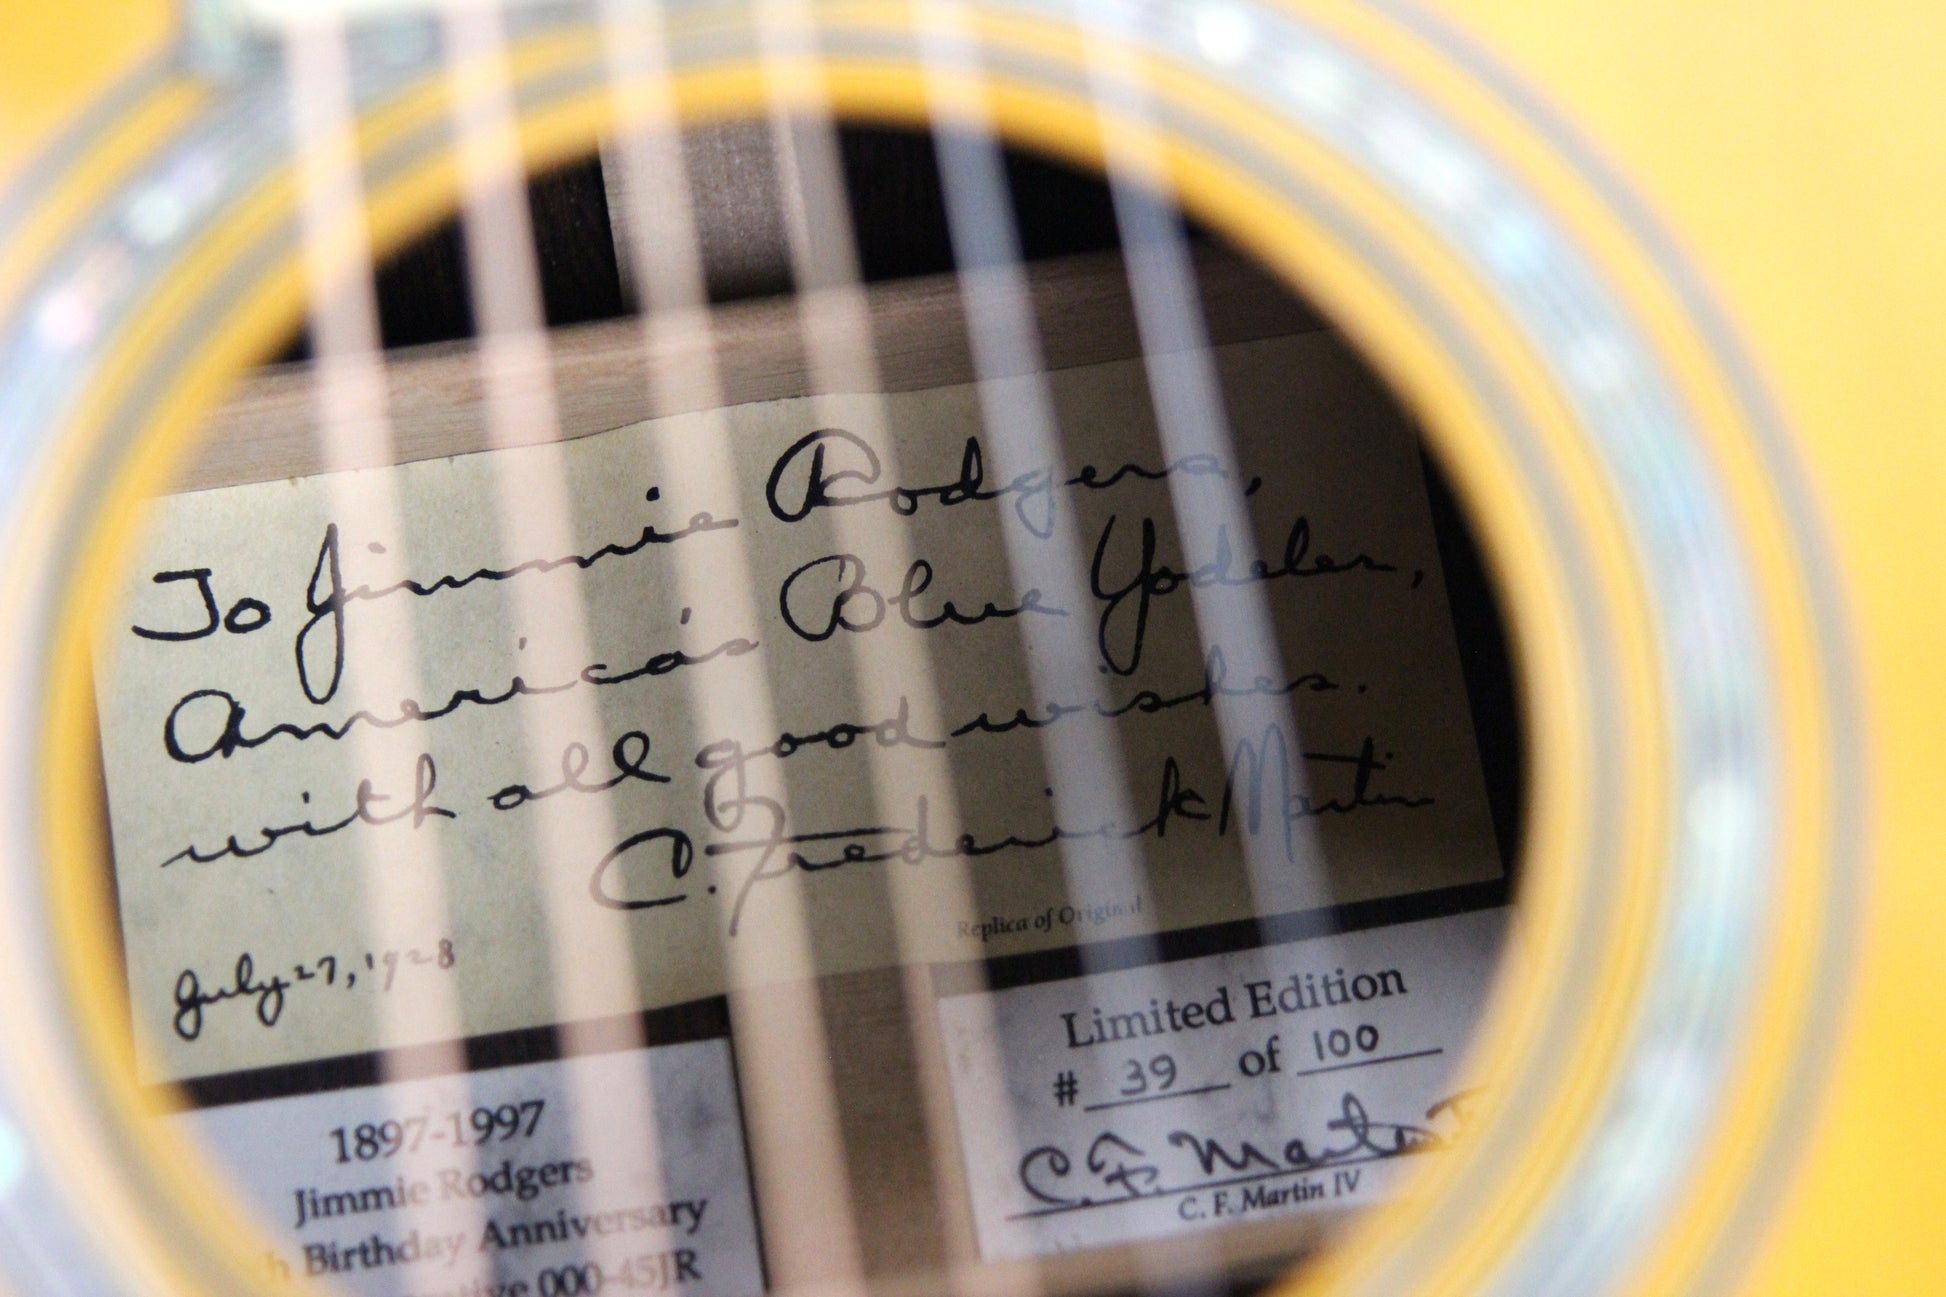 To Jimmie Rodgers,
America's Blue Yodeler,
with all good wishes.
C. Frederick Martin
July 27, 1928
Replica of Original
1897-1997
Jimmie Rodgers
Birthday Anniversary
000-45JR
Limited Edition
# 39 of 100
C. F. Martin
C. F. Martin IV